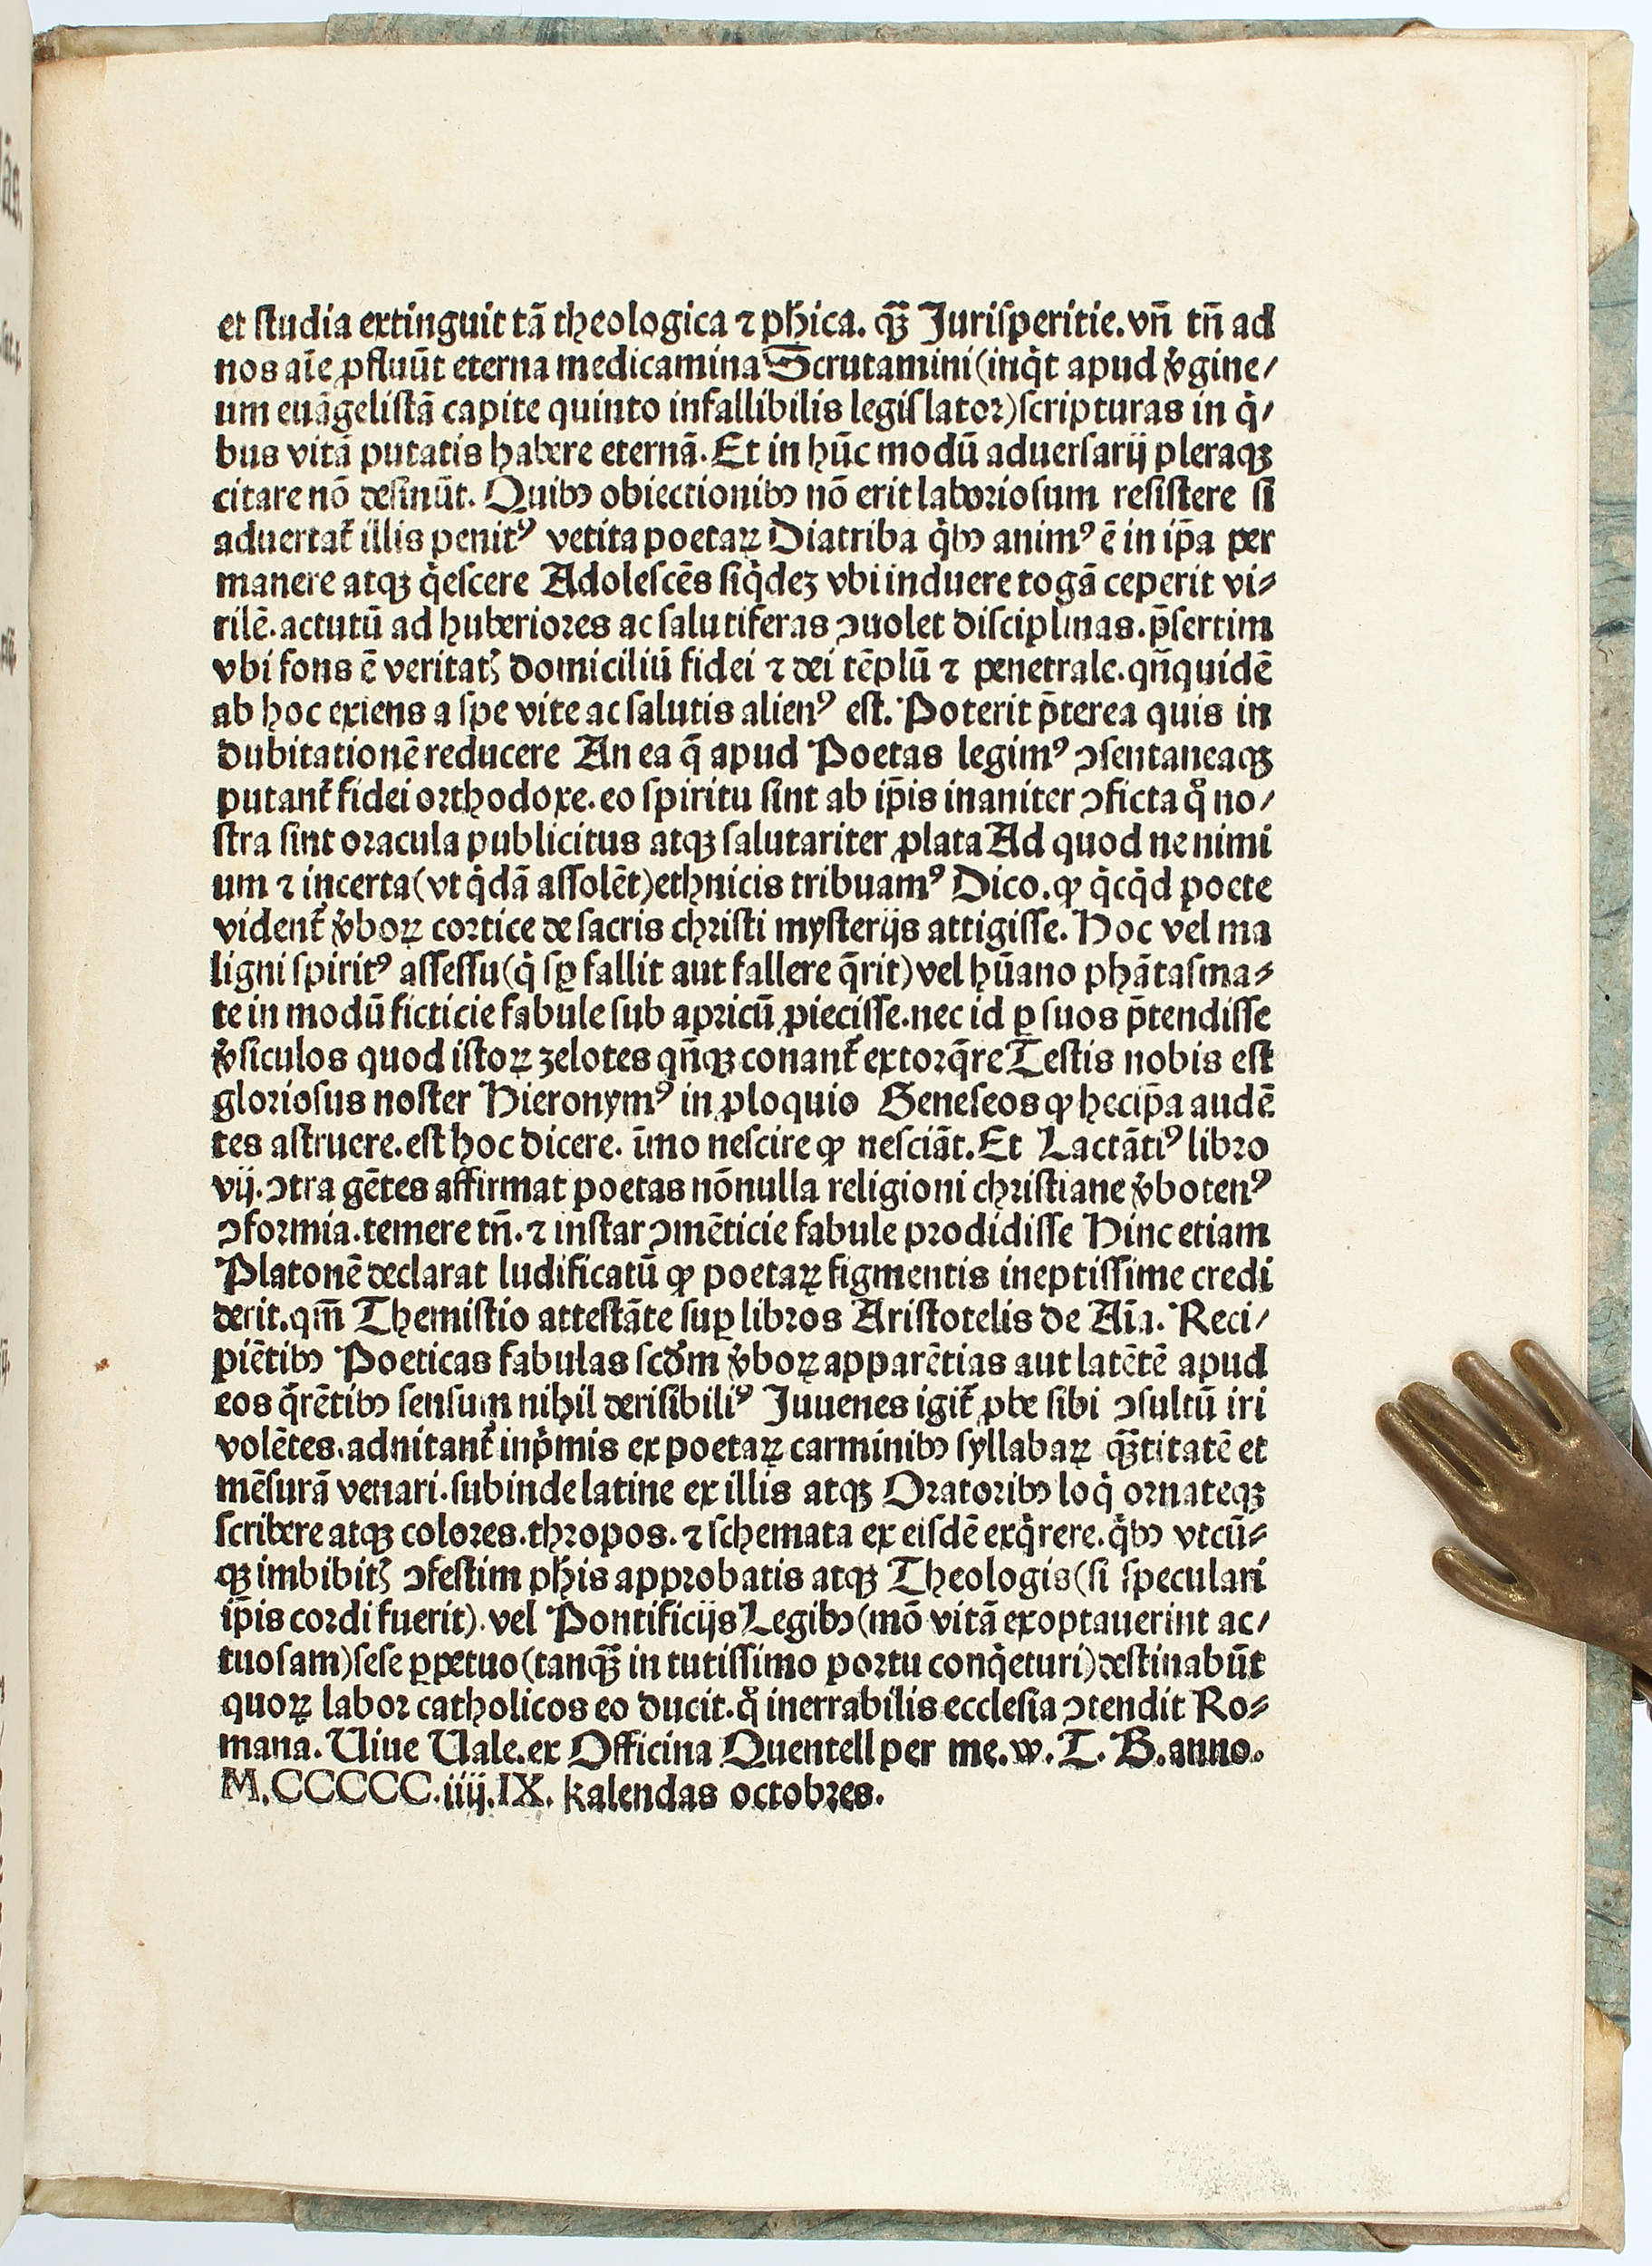 et studia extinguit tā theologica ⁊ phica. qꝫ̄ Jurisperitie. vn̄ tn̄ ad
nos aīe ꝓfluūt eterna medicamina Scrutamini (inqͥt apud v̓gine/
um euāgelistā capite quinto infallibilis legislator) scripturas in qͥ/
bus vitā putatis habere eternā. Et in hūc modū aduersarij pleraqꝫ
citare nō desinūt. Quibꝰ obiectionibꝰ nō erit laboriosum resistere si
aduertat᷑ illis penitꝰ vetita poetaꝝ Diatriba qͥbꝰ animꝰ ē in ip̄a per
manere atqꝫ qͥescere Adolescēs siqͥdeꝫ vbi induere togā ceperit vi⸗
rilē. actutū ad huberiores ac salutiferas ꝯuolet disciplinas. p̄sertim
vbi fons ē veritatꝭ domiciliū fidei ⁊ dei tēplū ⁊ penetrale. qn̄quidē
ab hoc exiens a spe vite ac salutis alienꝰ est. Poterit p̄terea quis in
dubitationē reducere An ea q̄ apud Poetas legimꝰ ꝯsentaneaqꝫ
putant᷑ fidei orthodoxe. eo spiritu sint ab ip̄is inaniter ꝯficta qͦ no/
stra sint oracula publicitus atqꝫ salutariter ꝓlata Ad quod ne nimi
um ⁊ incerta (vt qͥdā assolēt) ethnicis tribuamꝰ Dico. ꝙ qͥcqͥd poete
vident᷑ v̓boꝝ cortice de sacris christi mysterijs attigisse. Hoc vel ma
ligni spiritꝰ assessu (qͥ sꝑ fallit aut fallere q̄rit) vel hūano phātasma⸗
te in modū ficticie fabule sub apricū ꝓiecisse. nec id ꝑ suos p̄tendisse
v̓siculos quod istoꝝ zelotes qn̄qꝫ conant᷑ extorq̄re Testis nobis est
gloriosus noster Hieronymꝰ in ꝓloquio Geneseos ꝙ hec ip̄a audē
tes astruere. est hoc dicere. īmo nescire ꝙ nesciāt. Et Lactātiꝰ libro
vij. ꝯtra gētes affirmat poetas nōnulla religioni christiane v̓botenꝰ
ꝯformia. temere tn̄. ⁊ instar ꝯmēticie fabule prodidisse Hinc etiam
Platonē declarat ludificatū ꝙ poetaꝝ figmentis ineptissime credi
derit. qm̄ Themistio attestāte suꝑ libros Aristotelis de Aīa. Reci/
piētibꝰ Poeticas fabulas scd̓m v̓boꝝ apparētias aut latētē apud
eos q̄rētibꝰ sensum nihil derisibiliꝰ Juuenes igit᷑ ꝓbe sibi ꝯsultū iri
volētes. adnitant᷑ inpͥmis ex poetaꝝ carminibꝰ syllabaꝝ qꝫ̄titatē et
mēsurā venari. subinde latine ex illis atqꝫ Oratoribꝰ loqͥ ornateqꝫ
scribere atqꝫ colores. thropos. ⁊ schemata ex eisdē exqͥrere. qͥbꝰ vtcū⸗
qꝫ imbibitꝭ ꝯfestim phis approbatis atqꝫ Theologis (si speculari
ip̄is cordi fuerit). vel Pontificijs Legibꝰ (mō vitā exoptauerint ac/
tuosam) sese ꝑpetuo (tanqꝫ̄ in tutissimo portu conqͥeturi) destinabūt
quoꝝ labor catholicos eo ducit. qͦ inerrabilis ecclesia ꝯtendit Ro⸗
mana. Uiue Uale. ex Officina Quentell per me. w. T. B. anno.
M.CCCCC.iiij.IX. kalendas octobres.